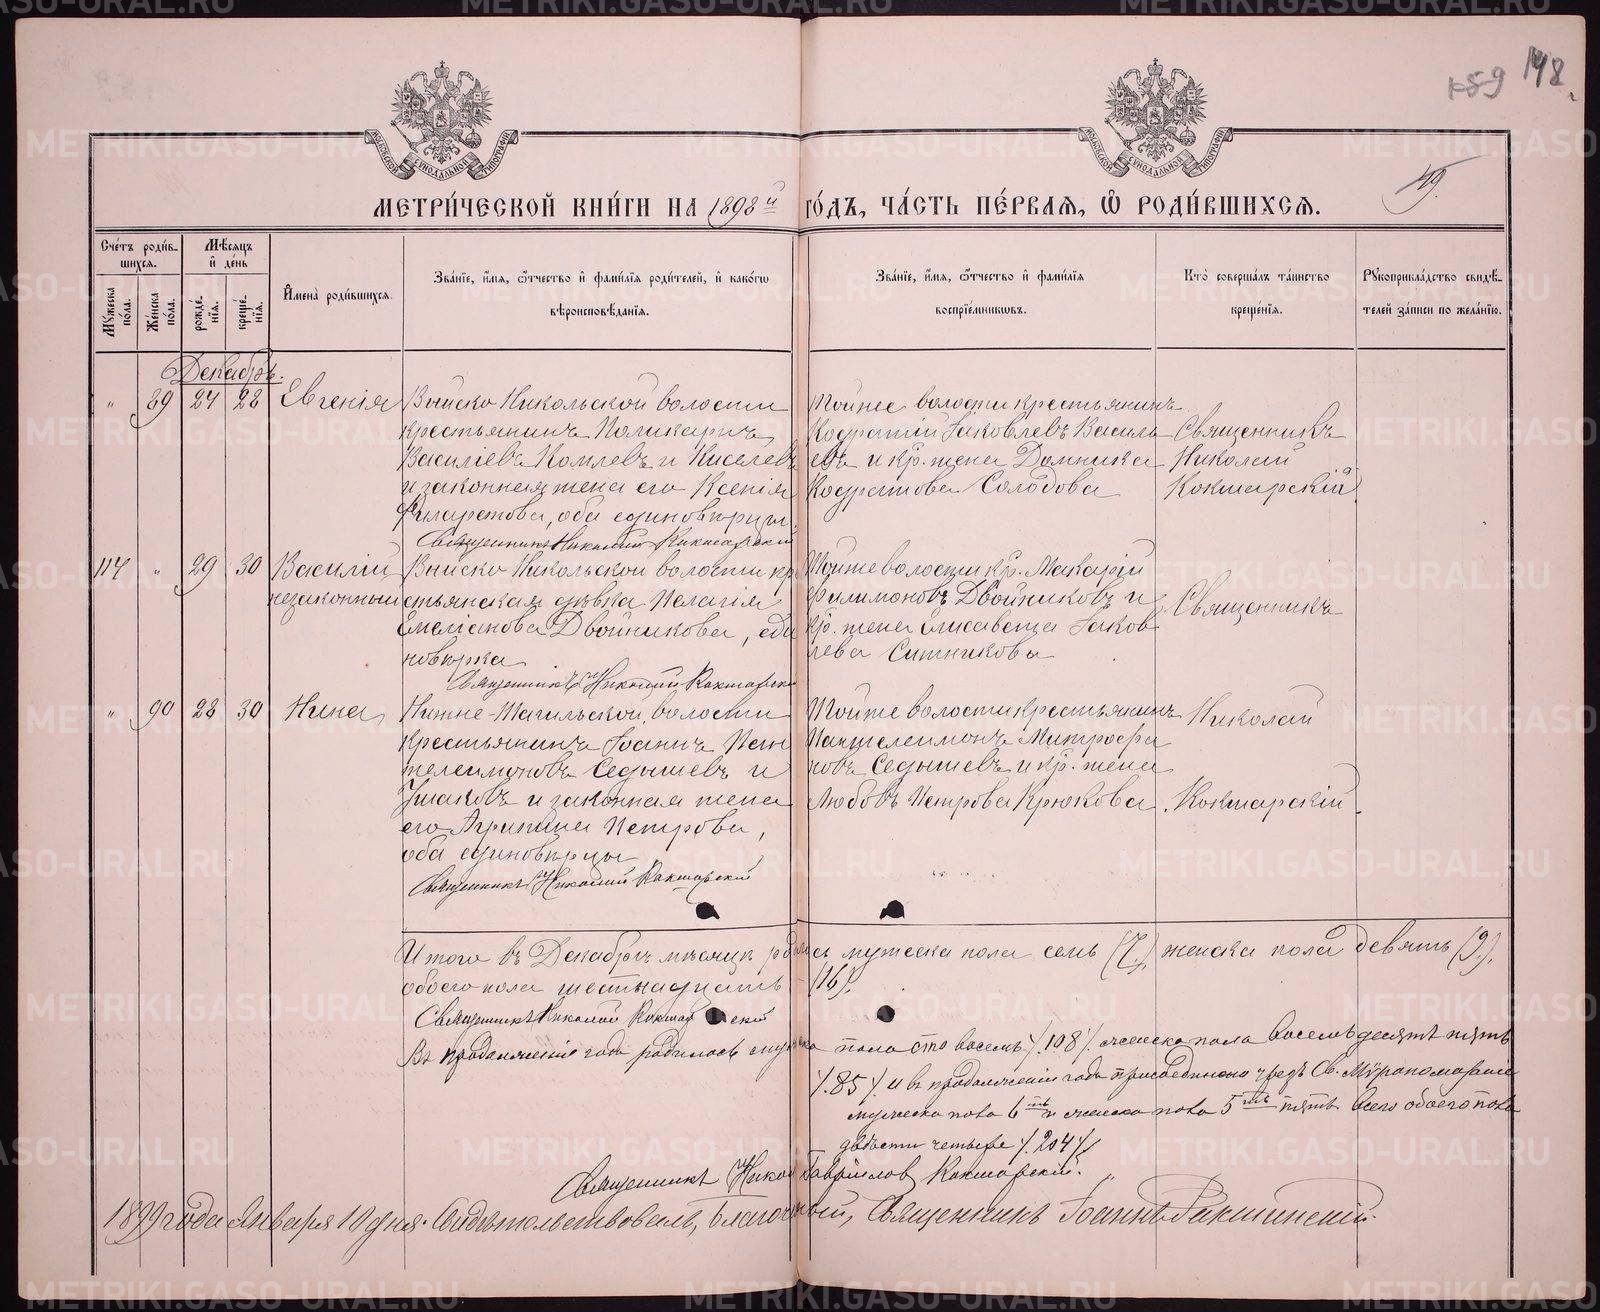 148
159
49.
МЕТРИ́ЧЕСКОЙ КНИ́ГИ НА 1898й ГО́ДЪ, ЧА́СТЬ ПЕ́РВАЯ, Ѡ РОДИ́ВШИХСЯ.
Сче́тъ роди́в-шихся.
Му́жеска по́ла.
Же́нска по́ла.
Мѣ́сяцъ и де́нь
рожде́-нїя.
креще́-нїя.
Имена̀ роди́вшихся.
Зва́нїе, и́мя, ѻ́тчество и фами́лїя роди́телей, и како́гѡ вѣроисповѣ́данїя.
Зва́нїе, и́мя, ѻ́тчество и фами́лїя воспрїе́мникѡвъ.
Кто̀ соверша́лъ та́инство креще́нїя.
Рукоприкла́дство свидѣ́-телей за́писи по жела́нїю.
Декабрь.
" 89 27 28 Евгенія
Выйско Никольской волости
крестьянинъ Поликарпъ
Василіевъ Комлевъ и Киселевъ
и законная жена его Ксенія
Филаретова, оба единовѣрцы.
Священникъ Николай Кокшарскій
Тойже волости крестьянинъ
Кодратій Іаковлевъ Василь
евъ и кр. жена Домника
Кодратова Солодова
Священникъ
Николай
Кокшарскій
114 " 29 30 Василій
незаконный
Выйско Никольской волости кре
стьянская дѣвка Пелагія
Емеліанова Двойникова, еди
новѣрка
Священникъ Николай Кокшарскій
Тойже волости кр. Макарій
Филимоновъ Двойниковъ и
кр. жена Елисавета Іаков
лева Ситникова
Священникъ
" 90 28 30 Нина
Нижне-Тагильской волости
крестьянинъ Іоаннъ Пан
телеимоновъ Седышевъ и
Ушаковъ и законная жена
его Агрипина Петрова,
оба единовѣрцы
Священникъ Николай Кокшарскій
Тойже волости крестьянинъ
Пантелеимонъ Митрофа
новъ Седышевъ и кр. жена
Любовь Петрова Крюкова
Николай
Кокшарскій
Итого въ Декабрѣ мѣсяцѣ родилось мужеска пола семь (7), женска пола девять (9),
обоего пола шестнадцать (16).
Священникъ Николай Кокшарскій
Въ продолженіе года родилось мужеска пола сто восемь /.108/. женска пола восемьдесятъ пять
/.85/. и въ продолженіи года присоединено чрезъ Св. Мѵропомазаніе
мужеска пола 6ть и женска пола 5ть пять. Всего обоего пола
двѣсти четыре /.204/.
Священникъ Николай Гавріиловъ Кокшарскій.
1899 года Января 10 дня. Свидѣтельствовалъ, благочинный, Священникъ Іоаннъ